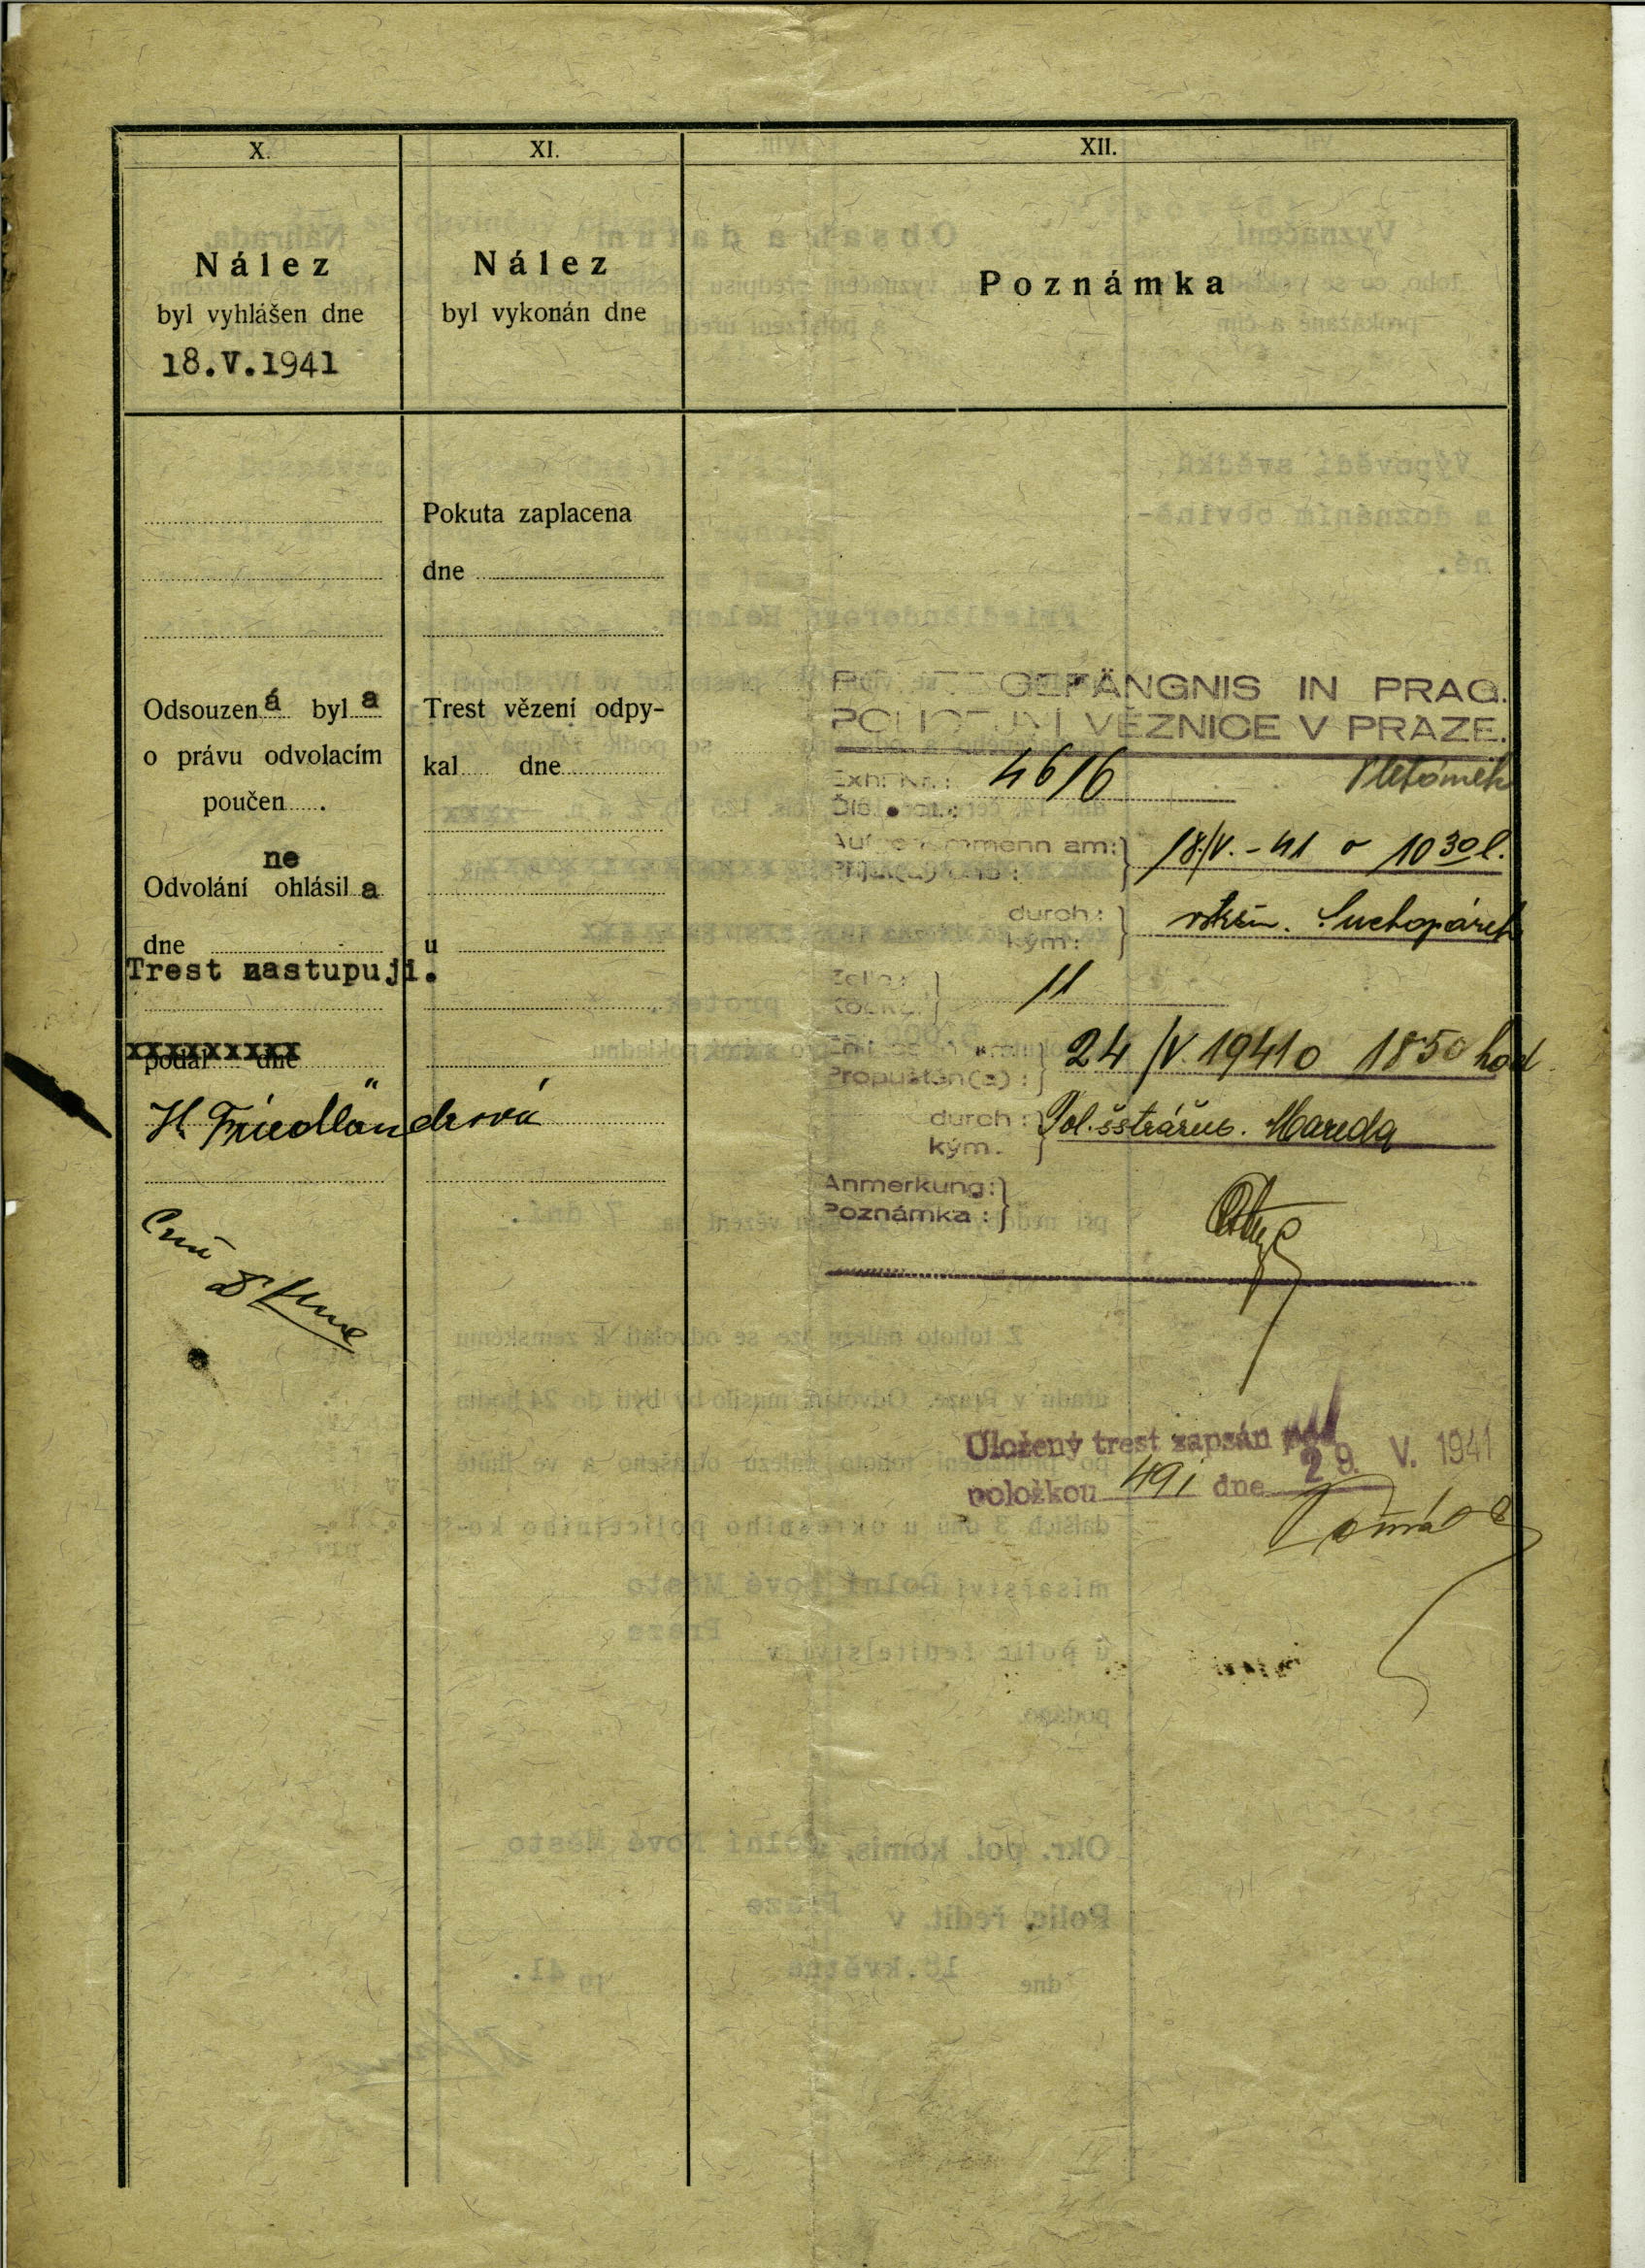 X.
Nález
byl vyhlášen dne
18.V.1941
Odsouzená byla
o právu odvolacím
poučen .
ne
Odvolání ohlásil a
dne
Trest nastupuji.
xxxxxxxxx
podal dne
H. Friedländrová
XI.
Nález
byl vykonán dne
Pokuta zaplacena
dne
Trest vězení odpy-
kal dne
u
XII.
Poznámka
GEFÄNGNIS IN PRAG.
POLICEJNÍ VĚZNICE V PRAZE.
Exh. Nr.: 4616
Čís.
Aufgenommenn am: 18./V. - 41 o 10 30 h.
durch:
kým: Suchopárek
Zelle: 11
24/V. 1941 o 18 50 hod.
Propuštěn(a):
durch: Pol. strážm. Mareda
kým.
Anmerkung:
Poznámka:
Uložený trest zapsán pod
položkou 491 dne 29. V. 1941